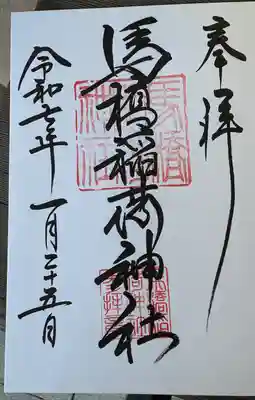 奉拝
馬橋稲荷神社
令和七年 一月二十五日